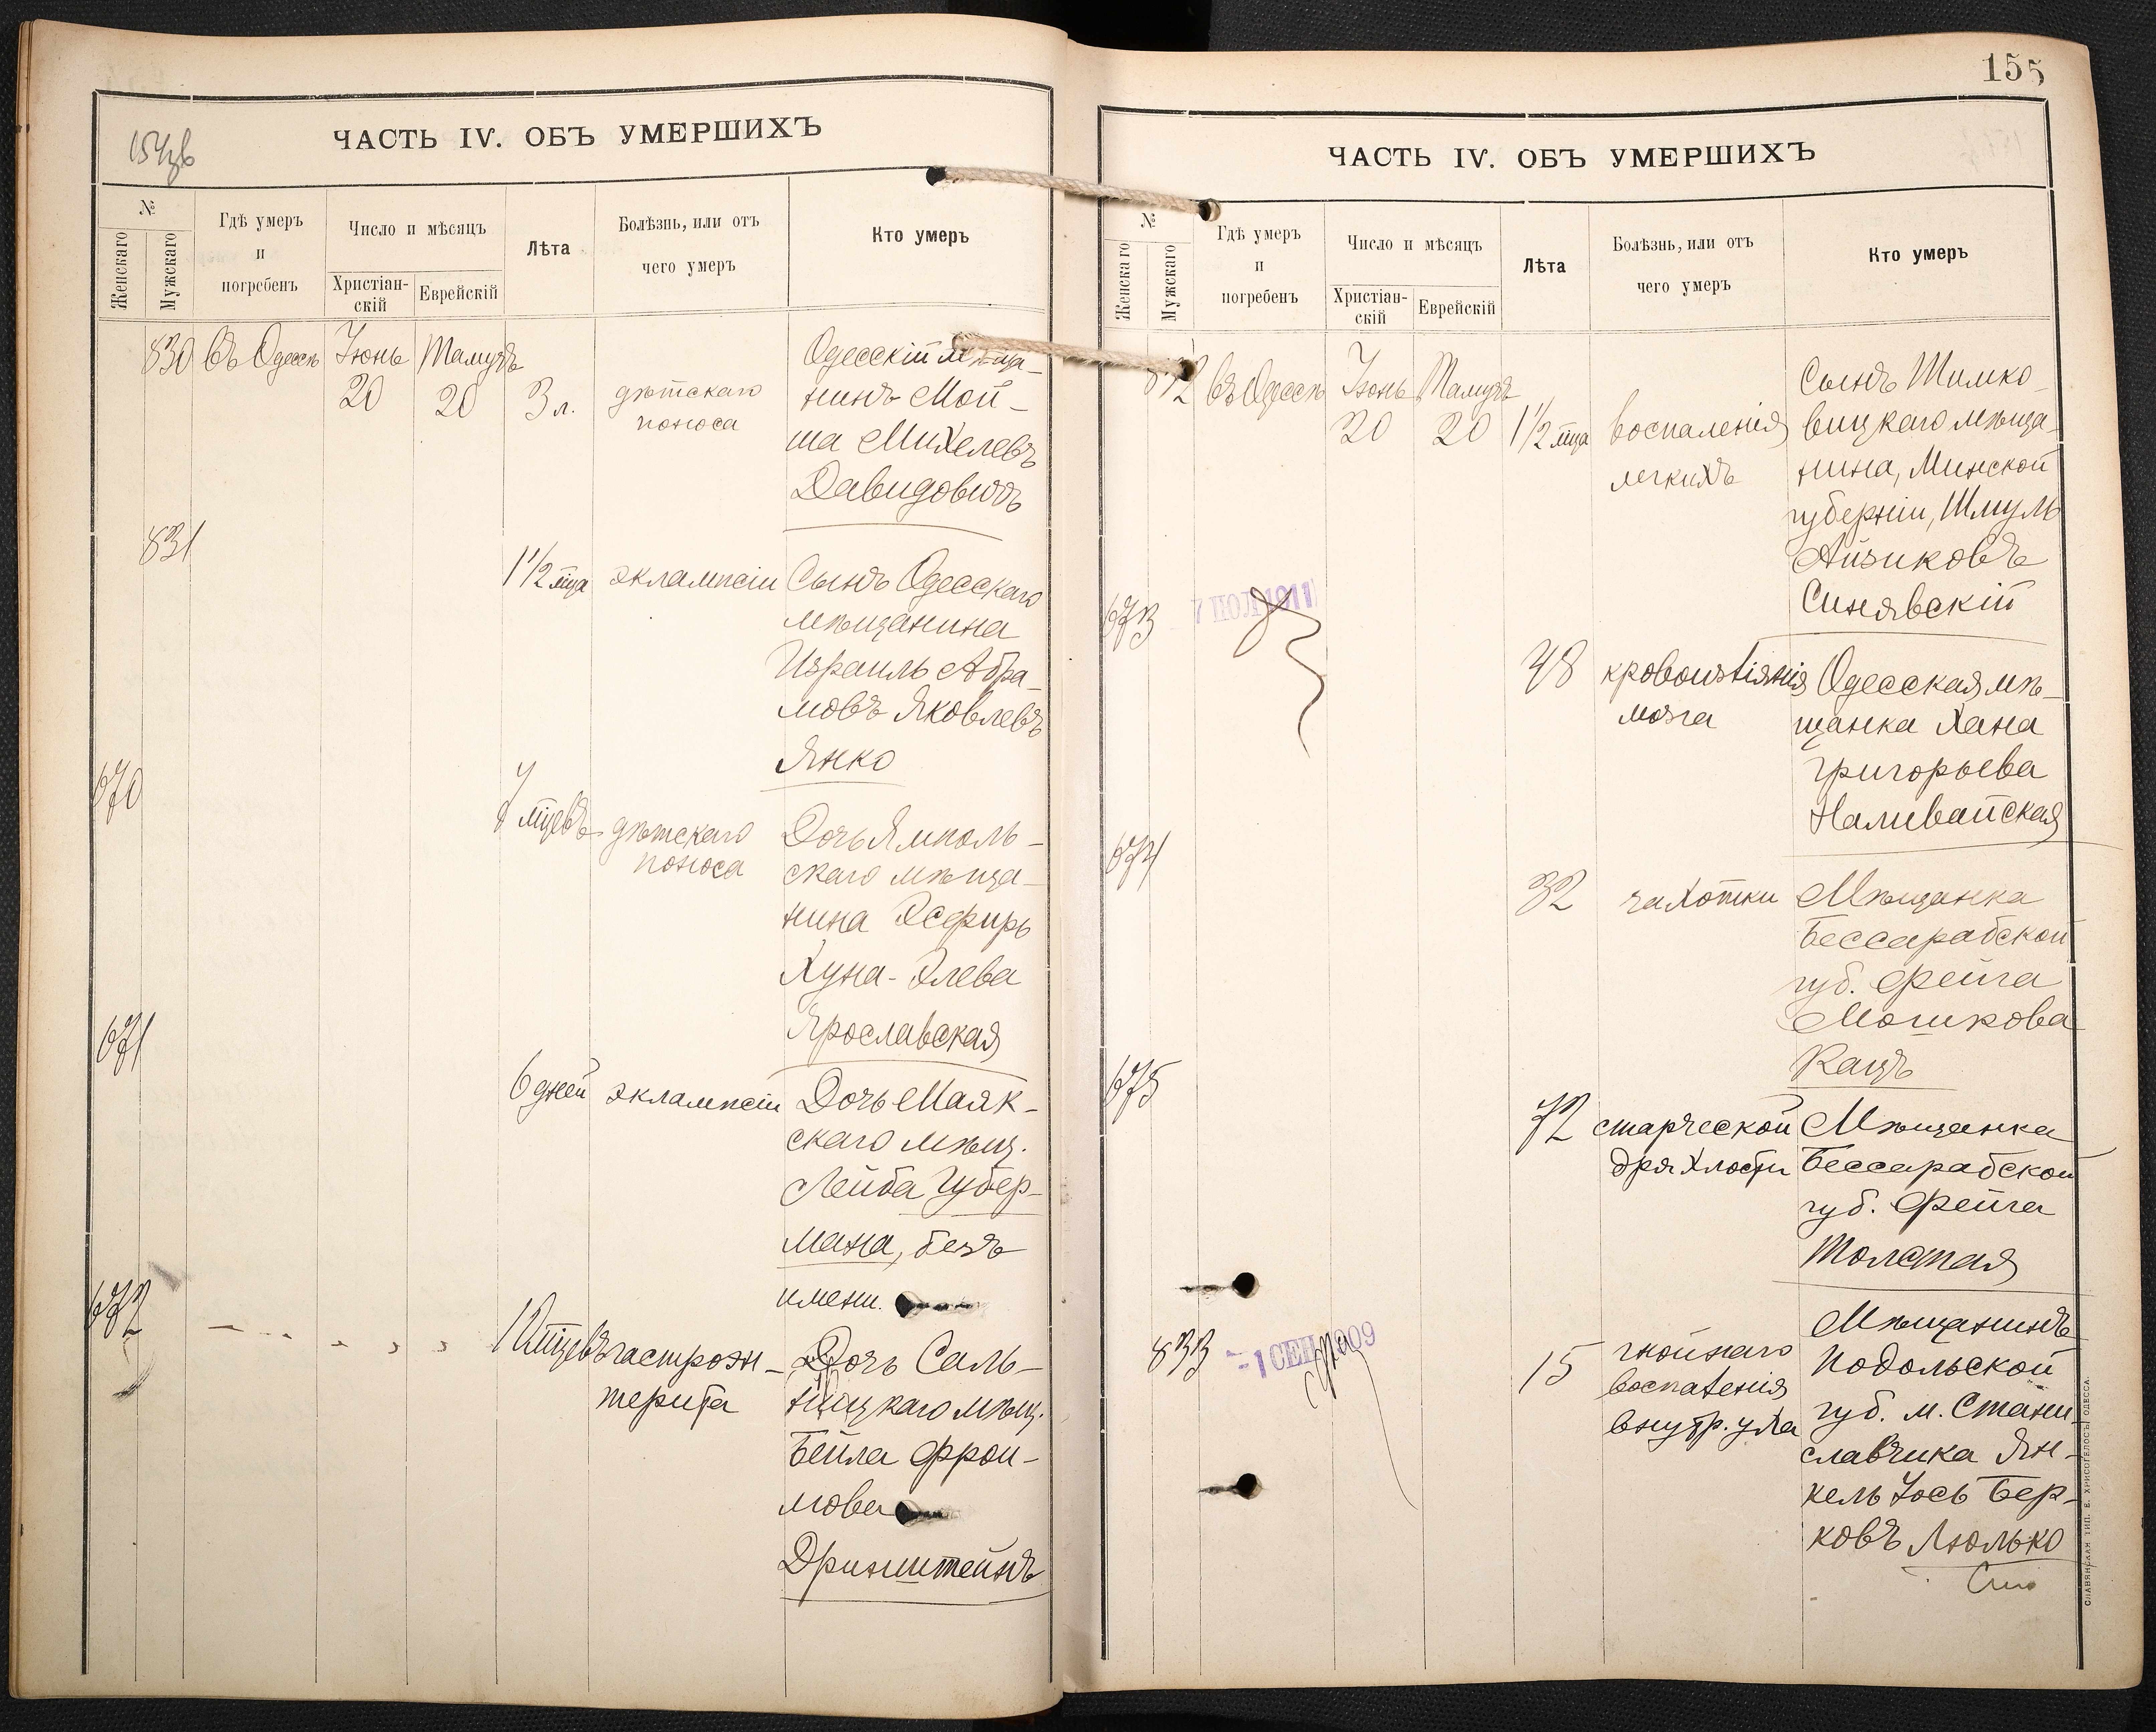 ЧАСТЬ IV. ОБЪ УМЕРШИХЪ
№
Женскаго
Мужскаго
Гдѣ умеръ
и
погребенъ
Число и мѣсяцъ
Христіан-
скій
Еврейскій
Лѣта
Болѣзнь, или отъ
чего умеръ
Кто умеръ
830 Въ Одессѣ Іюнь Тамузъ
20 20 3 л.
дѣтскаго
поноса
Одесскій мѣща-
нинъ Мой-
ша Михелевъ
Давидовичъ
831
1 1/2 мца эклампсіи
Сынъ Одесскаго
мѣщанина
Израиль Абра-
мовъ Яковлевъ
Янко
670
7 мцевъ дѣтскаго
поноса
Дочь Ямполь-
скаго мѣща-
нина Эсфирь
Хуна-Элева
Ярославская
671
6 дней эклампсіи
Дочь Маяк-
скаго мѣщ.
Лейба Губер-
мана, безъ
имени.
672
мцевъ гастроэн-
терита
Дочь Саль-
ницкаго мѣщ.
Бейла Фрои-
мова
Дринштейнъ
155
ЧАСТЬ IV. ОБЪ УМЕРШИХЪ
№
Женскаго
Мужскаго
Гдѣ умеръ
и
погребенъ
Число и мѣсяцъ
Христіан-
скій
Еврейскій
Лѣта
Болѣзнь, или отъ
чего умеръ
Кто умеръ
832 Въ Одессѣ Іюнь Тамузъ
20 20 1 1/2 мца
воспаленія
легкихъ
Сынъ Шимко-
вицкаго мѣща-
нина, Минской
губерніи, Шмуль
Айзиковъ
Синявскій
673
7 ИЮЛ 1911
48 кровоизліянія
мозга
Одесская мѣ-
щанка Хана
Григорьева
Наливайская
674
32 чахотки
Мѣщанка
Бессарабской
губ. Фейга
Мошкова
Кацъ
675
72 старческой
дряхлости
Мѣщанка
Бессарабской
губ. Фейга
Толстая
833
-1 СЕН 1909
15 гнойнаго
воспаленія
внутр. уха
Мѣщанинъ
Подольской
губ. м. Стани-
славчика Ян-
кель Іось Бер-
ковъ Люлько
СЛАВЯНСКАЯ ТИП. Е. ХРИСОГЕЛОСЪ, ОДЕССА.